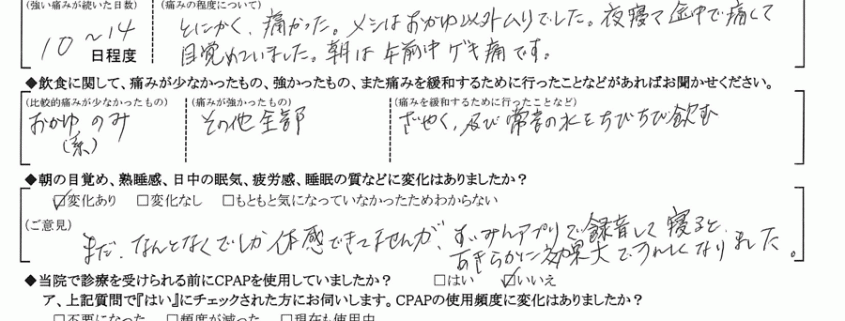 (強い痛みが続いた日数) (痛みの程度について)
10～14 日程度
とにかく、痛かった。メシはおかゆ以外ムリでした。夜寝て途中で痛くて
目覚めていました。朝は午前中ゲキ痛です。
◆飲食に関して、痛みが少なかったもの、強かったもの、また痛みを緩和するために行ったことなどがあればお聞かせください。
(比較的痛みが少なかったもの) (痛みが強かったもの) (痛みを緩和するために行ったことなど)
おかゆのみ その他全部 ざやく、及び常音の水をちびちび飲む
(系)
◆朝の目覚め、熟睡感、日中の眠気、疲労感、睡眠の質などに変化はありましたか？
☑変化あり □変化なし □もともと気になっていなかったためわからない
(ご意見)
まだ、なんとなくでしか体感できてませんが、すいみんアプリで録音して寝ると、
あきらかに効果大でうれしくなりました。
◆当院で診療を受けられる前にCPAPを使用していましたか？ □はい ☑いいえ
ア、上記質問で『はい』にチェックされた方にお伺いします。CPAPの使用頻度に変化はありましたか？
□不要になった □頻度が減った □現在も使用中